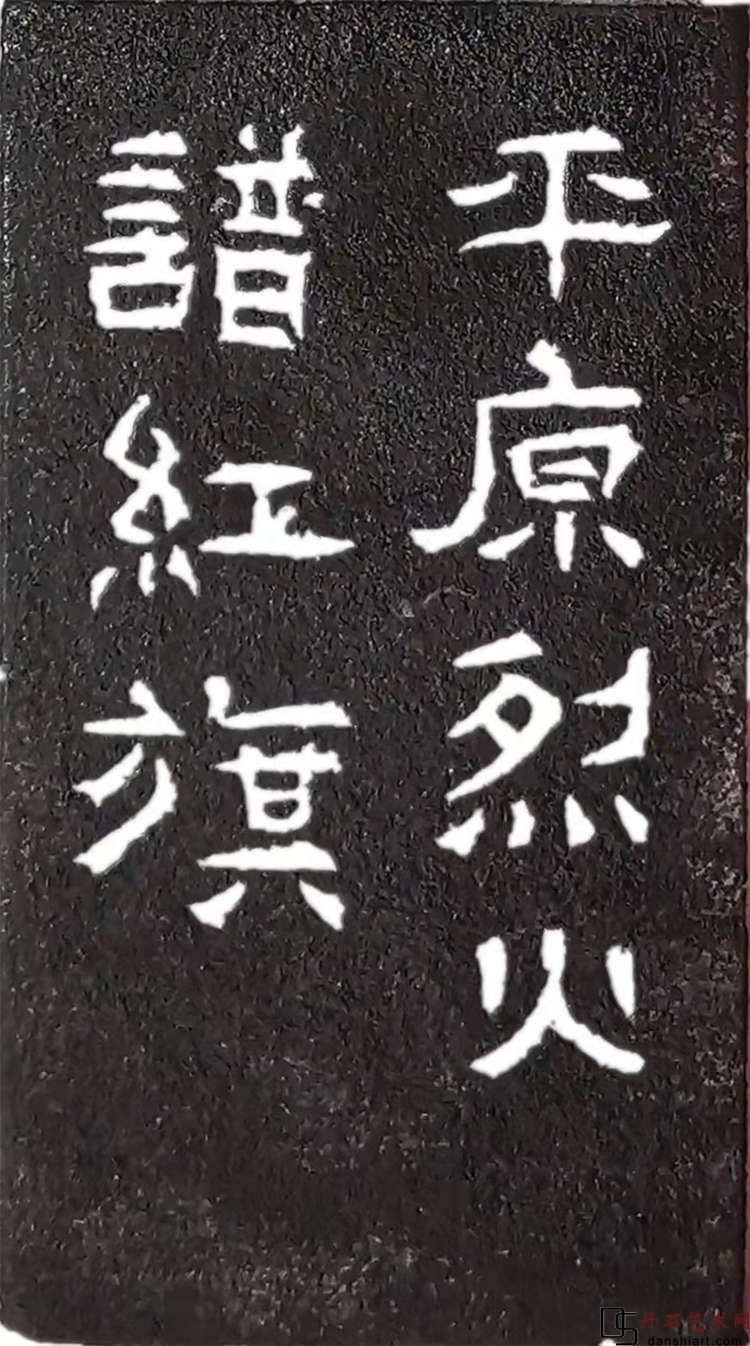 平原烈火
譜紅旗
丹石艺术网
danshiart.com